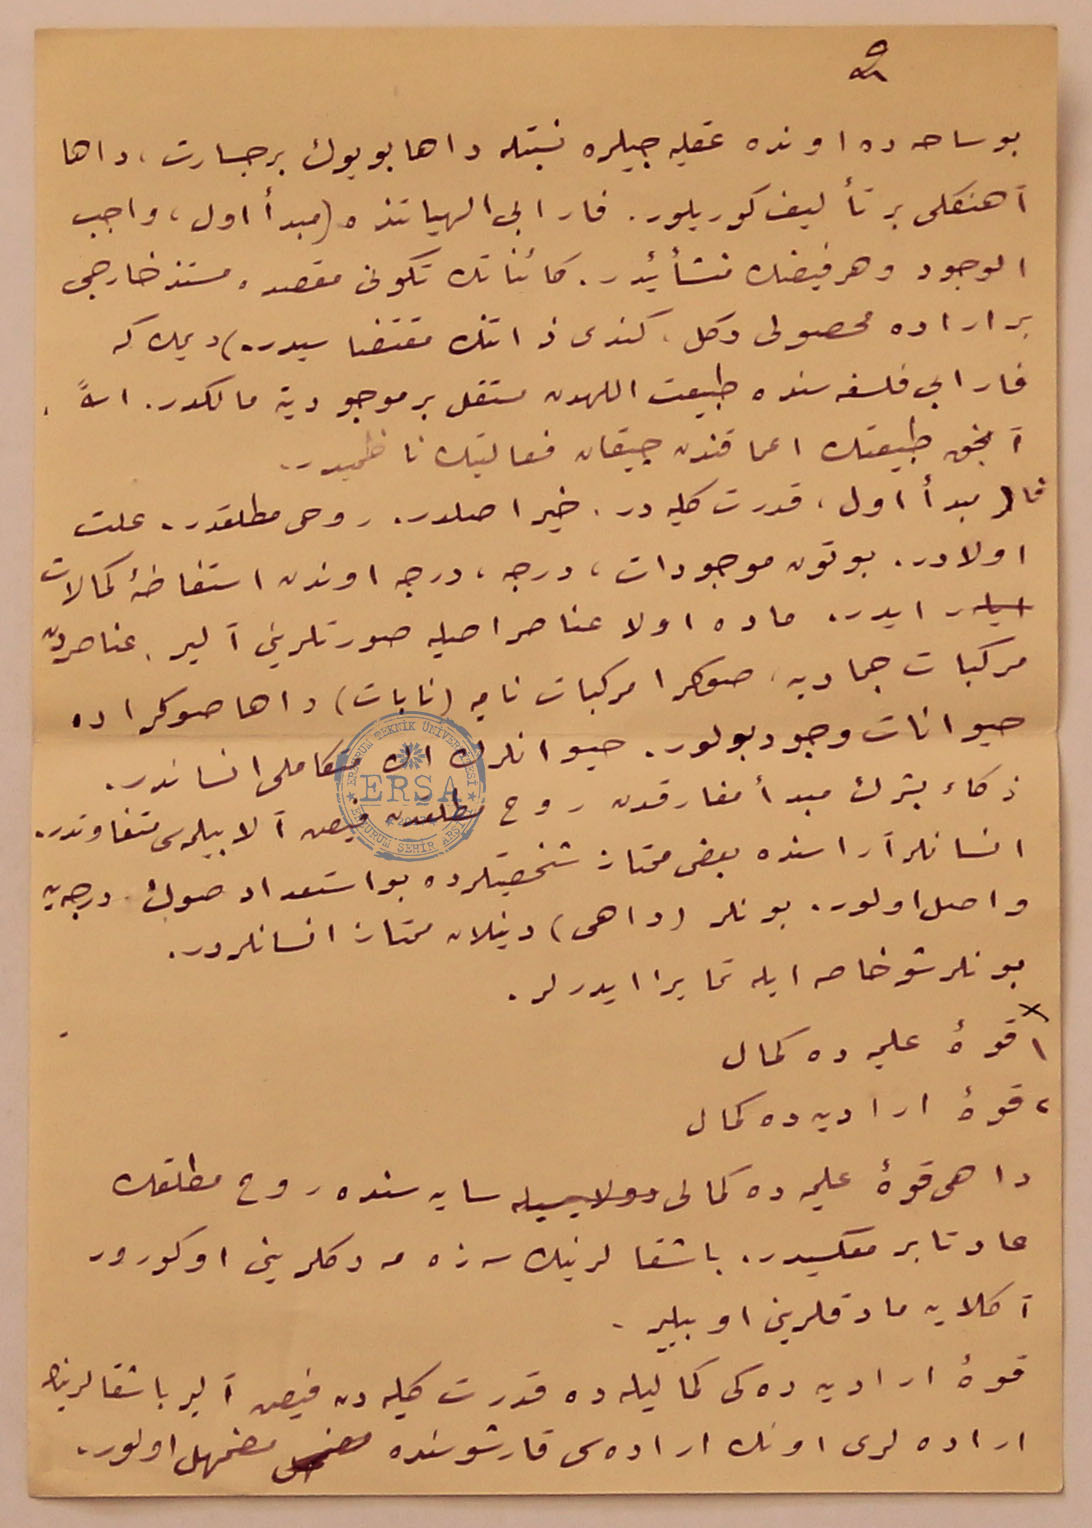 بو ساحه ده اونده عقليه جيلره نسبتله داها بويوك بر جسارت ، داها
آهنكلى بر تأليف كوريلور . فارابى الهياتنده (مبدأ اول ، واجب
الوجود و هر فيضك منشأيدر . كائناتك تكونى مقصده مستند خارجى
بر اراده محصولى دكل ، كندى ذاتنك مقتضاسيدر .) ديمك كه
فارابى فلسفه سنده طبيعت اللهدن مستقل بر موجوديته مالكدر . الله ،
آنجق طبيعتك اعماقندن چيقان فعاليتك ناظميدر .
فا ( مبدأ اول ، قدرت كليه در . خير اصلدر . روحى مطلقدر . علت
اولادر . بوتون موجودات ، درجه ، درجه اوندن استفاضهٔ كمالات
ايدر . ماده اولا عناصر اصليه صورتلرينى آلير . عناصردن
مركبات جماديه ، صوكرا مركبات ناميه (نباتات) داها صوكرا ده
حيوانات وجود بولور . حيوانلرك اك متكاملى انساندر .
ذكاء بشرك مبدأ مفارقدن روح مطلقدن فيض آلابيلمه سى متفاوتدر .
انسانلر آراسنده بعضى ممتاز شخصيتلرده بو استعداد صوك درجه يه
واصل اولور . بونلر (داهى) دينلان ممتاز انسانلردر .
بونلر شو خاصه ايله تمايز ايدرلر .
١ قوهٔ علميه ده كمال
٢ قوهٔ اراديه ده كمال
داهى قوهٔ علميه ده كمالى دولاييسيله سايه سنده روح مطلقك
عادتا بر معكسيدر . باشقالرينك سزه مه دكلرينى او كورور
آكلايه مادقلرينى او بيلير .
قوهٔ اراديه ده كى كماليله ده قدرت كليه دن فيض آلير باشقالرينك
اراده لرى اونك اراده سى قارشوسنده مضمحل اولور .
ERSA
ERZURUM TEKNİK ÜNİVERSİTESİ
ERZURUM ŞEHİR ARŞİVİ